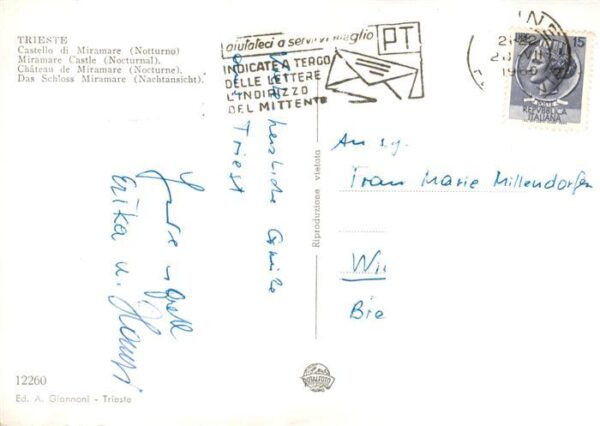 TRIESTE
Castello di Miramare (Notturno)
Miramare Castle (Nocturnal).
Château de Miramare (Nocturne).
Das Schloss Miramare (Nachtansicht).
aiutateci a servirvi meglio
PT
INDICATE A TERGO
DELLE LETTERE
L'INDIRIZZO
DEL MITTENTE
15
REPUBBLICA
ITALIANA
herzliche Grüße
Triest
Erika u. Hansi
Riproduzione vietata
An
Frau Marie Millendorfer
12260
Ed. A. Giannoni - Trieste